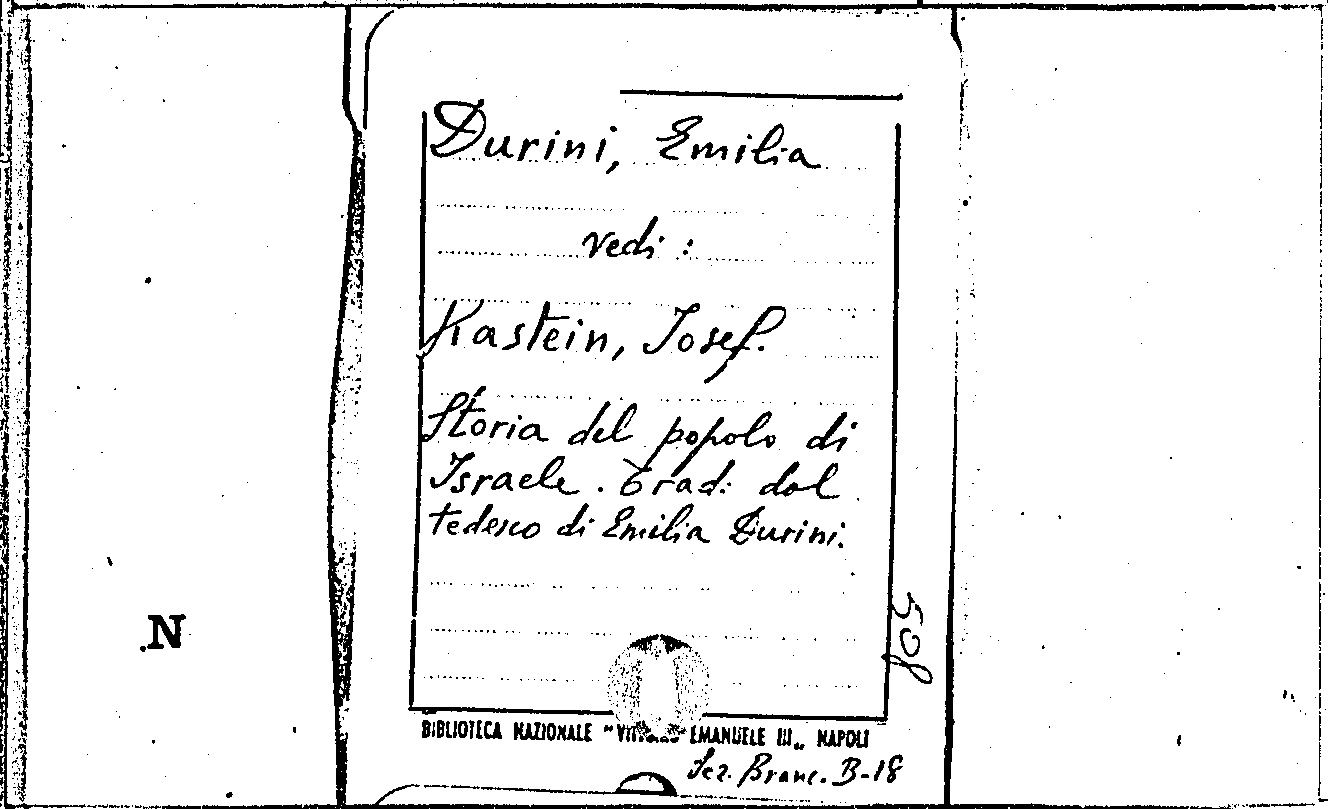 Durini, Emilia
vedi :
Kastein, Josef.
Storia del popolo di
Israele. Trad: dal
tedesco di Emilia Durini.
508
N
BIBLIOTECA NAZIONALE "VITTORIO EMANUELE III„ NAPOLI
Sez. Branc. B-18